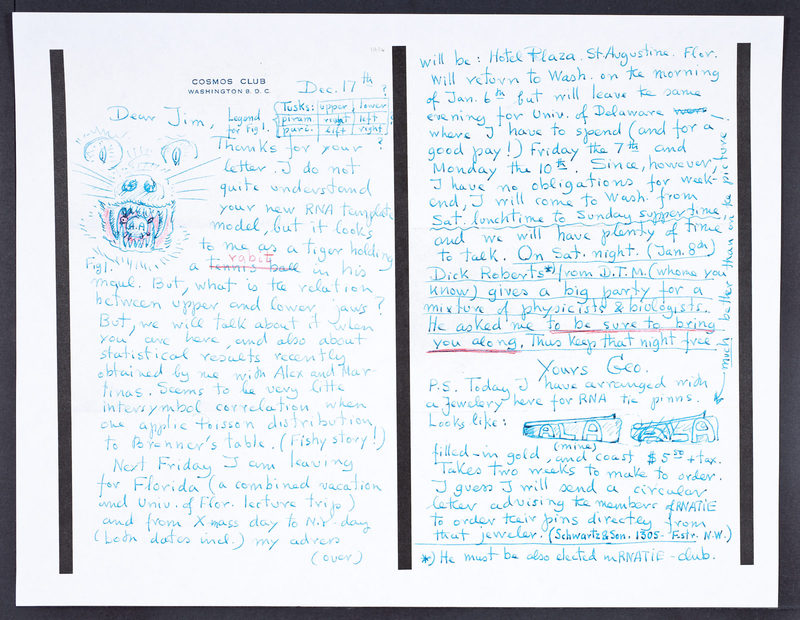 COSMOS CLUB
WASHINGTON 8. D. C.
Dec. 17th
Dear Jim,
Legend for Fig 1.
Tusks: upper lower
piram. right left
puric. Left right
?
?
Thanks for your
letter. I do not
quite understand
your new RNA template
model, but it looks
to me as a tiger holding
a tennis ball rabit in his
Fig 1.
moul. But, what is the relation
between upper and lower jaws?
But, we will talk about it when
you are here, and also about
statistical results recently
obtained by me with Alex and Mar-
tinas. Seems to be very litte
intersymbol correlation when
one applie Poisson distribution
to Brenner's table. (Fishy story!)
Next Friday I am leaving
for Florida (a combined vacation
and Univ. of Flor. lecture trip)
and from X-mass day to N.Y. day
(both dates incl.) my adres
(over)
will be: Hotel Plaza. St. Augustine. Flor.
Will return to Wash. on the morning
of Jan. 6th but will leave the same
evening for Univ. of Delaware
where I have to spend (and for a
good pay!) Friday the 7th and
Monday the 10th. Since, however,
I have no obligations for week-
end, I will come to Wash. from
Sat. lunchtime to Sunday supper time,
and we will have plenty of time
to talk. On Sat. night. (Jan. 8th)
Dick Roberts*) from D.T.M. (whome you
know) gives a big party for a
mixture of physicists & biologists.
He asked me to be sure to bring
you along. Thus keep that night free.
Yours Geo.
P.S. Today I have arranged with
a Jewelery here for RNA tie pinns.
Looks like: ALA ALA
(mine)
much better than on the picture!
filled-in gold, and coast $ 5 50 + tax.
Takes two weeks to make to order.
I guess I will send a circular
letter advising the members of RNATIE
to order their pins directly from
that jeweler. (Schwartz & Son. 1305- F.str. N.W.)
*) He must be also elected in RNATIE-club.